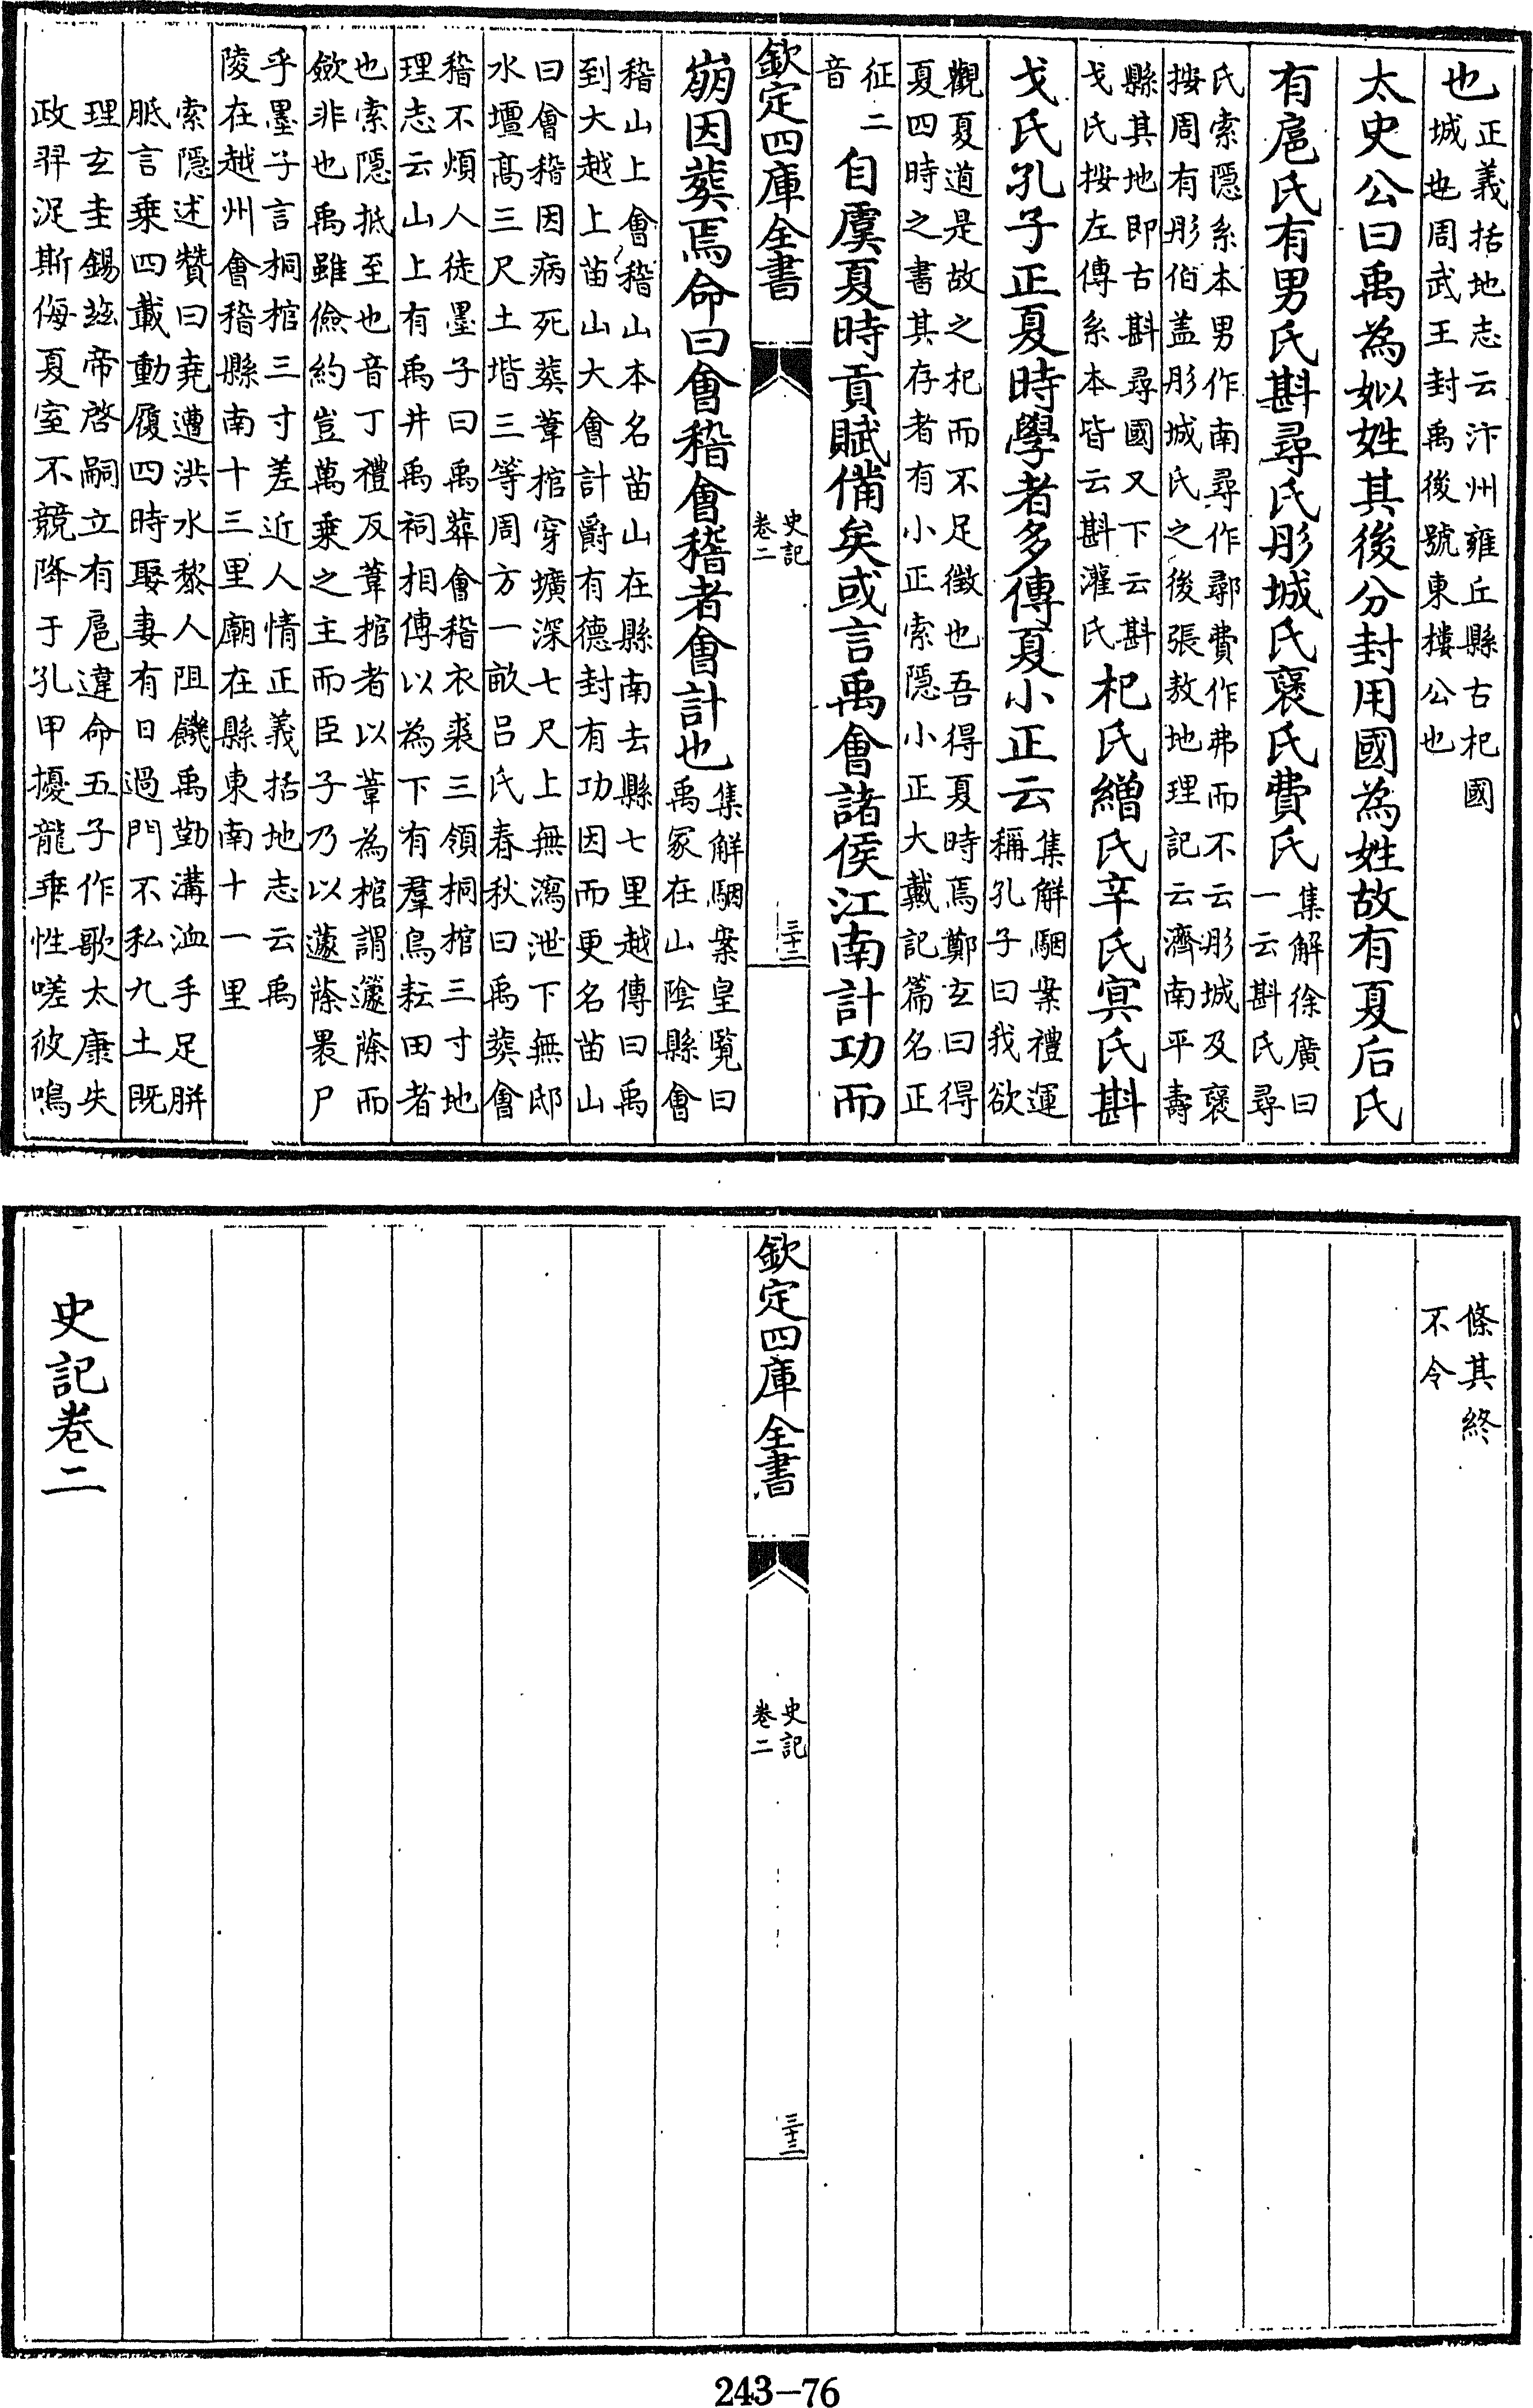 也
正義括地志云汴州雍丘縣古杞國
城也周武王封禹後號東樓公也
太史公曰禹為姒姓其後分封用國為姓故有夏后氏
有扈氏有男氏斟尋氏彤城氏襃氏費氏
集解徐廣曰
一云斟氏尋
氏索隱系本男作南尋作鄩費作弗而不云彤城及襃
按周有彤伯盖彤城氏之後張敖地理記云濟南平壽
縣其地即古斟尋國又下云斟
戈氏按左傳系本皆云斟灌氏
杞氏繒氏辛氏冥氏斟
戈氏孔子正夏時學者多傳夏小正云
集解駰案禮運
稱孔子曰我欲
觀夏道是故之杞而不足徵也吾得夏時焉鄭玄曰得
夏四時之書其存者有小正索隱小正大戴記篇名正
征二
音
自虞夏時貢賦備矣或言禹會諸侯江南計功而
欽定四庫全書
史記
卷二
三十二
崩因葬焉命曰會稽會稽者會計也
集解駰案皇覽曰
禹冢在山陰縣會
稽山上會稽山本名苗山在縣南去縣七里越傳曰禹
到大越上苗山大會計爵有德封有功因而更名苗山
曰會稽因病死葬葦棺穿壙深七尺上無瀉泄下無邸
水壇髙三尺土堦三等周方一畝吕氏春秋曰禹葬會
稽不煩人徒墨子曰禹葬會稽衣裘三領桐棺三寸地
理志云山上有禹井禹祠相傳以為下有羣鳥耘田者
也索隱抵至也音丁禮反葦棺者以葦為棺謂籧蒢而
斂非也禹雖儉約豈萬乗之主而臣子乃以蘧蒢裹尸
乎墨子言桐棺三寸差近人情正義括地志云禹
陵在越州會稽縣南十三里廟在縣東南十一里
索隱述贊曰堯遭洪水黎人阻饑禹勤溝洫手足胼
胝言乗四載動履四時娶妻有日過門不私九土既
理玄圭錫兹帝啓嗣立有扈違命五子作歌太康失
政羿浞斯侮夏室不競降于孔甲擾龍乖性嗟彼鳴
條其終
不令
欽定四庫全書
史記
卷二
三十三
史記卷二
243-76